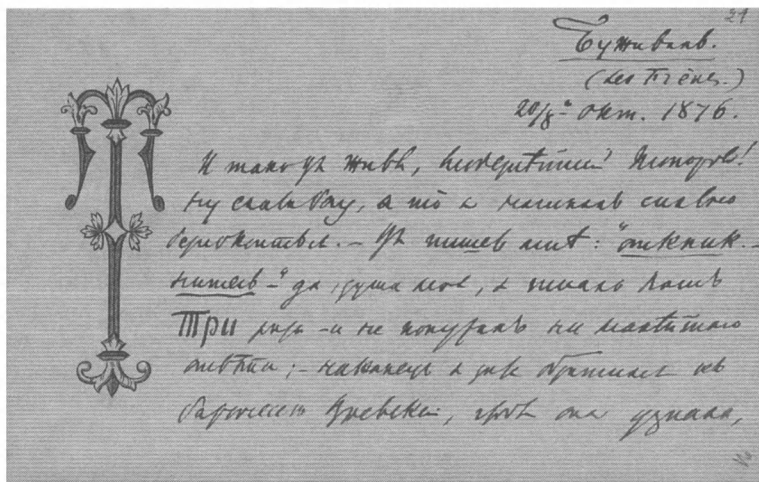 21
Буживаль.
(Les Frênes.)
20/8-го Окт. 1876.
И такъ Вы живы, любезнѣйшій Топоровъ!
Ну слава Богу, а то я начиналъ сильно
безпокоиться. – Вы пишете мнѣ: "откник-
нитесь" – да, душа моя, я писалъ Вамъ
Три раза – и не получалъ ни малѣйшаго
отвѣта; – наконецъ я уже обратился къ
баронессѣ Вревской, чтобъ она узнала,